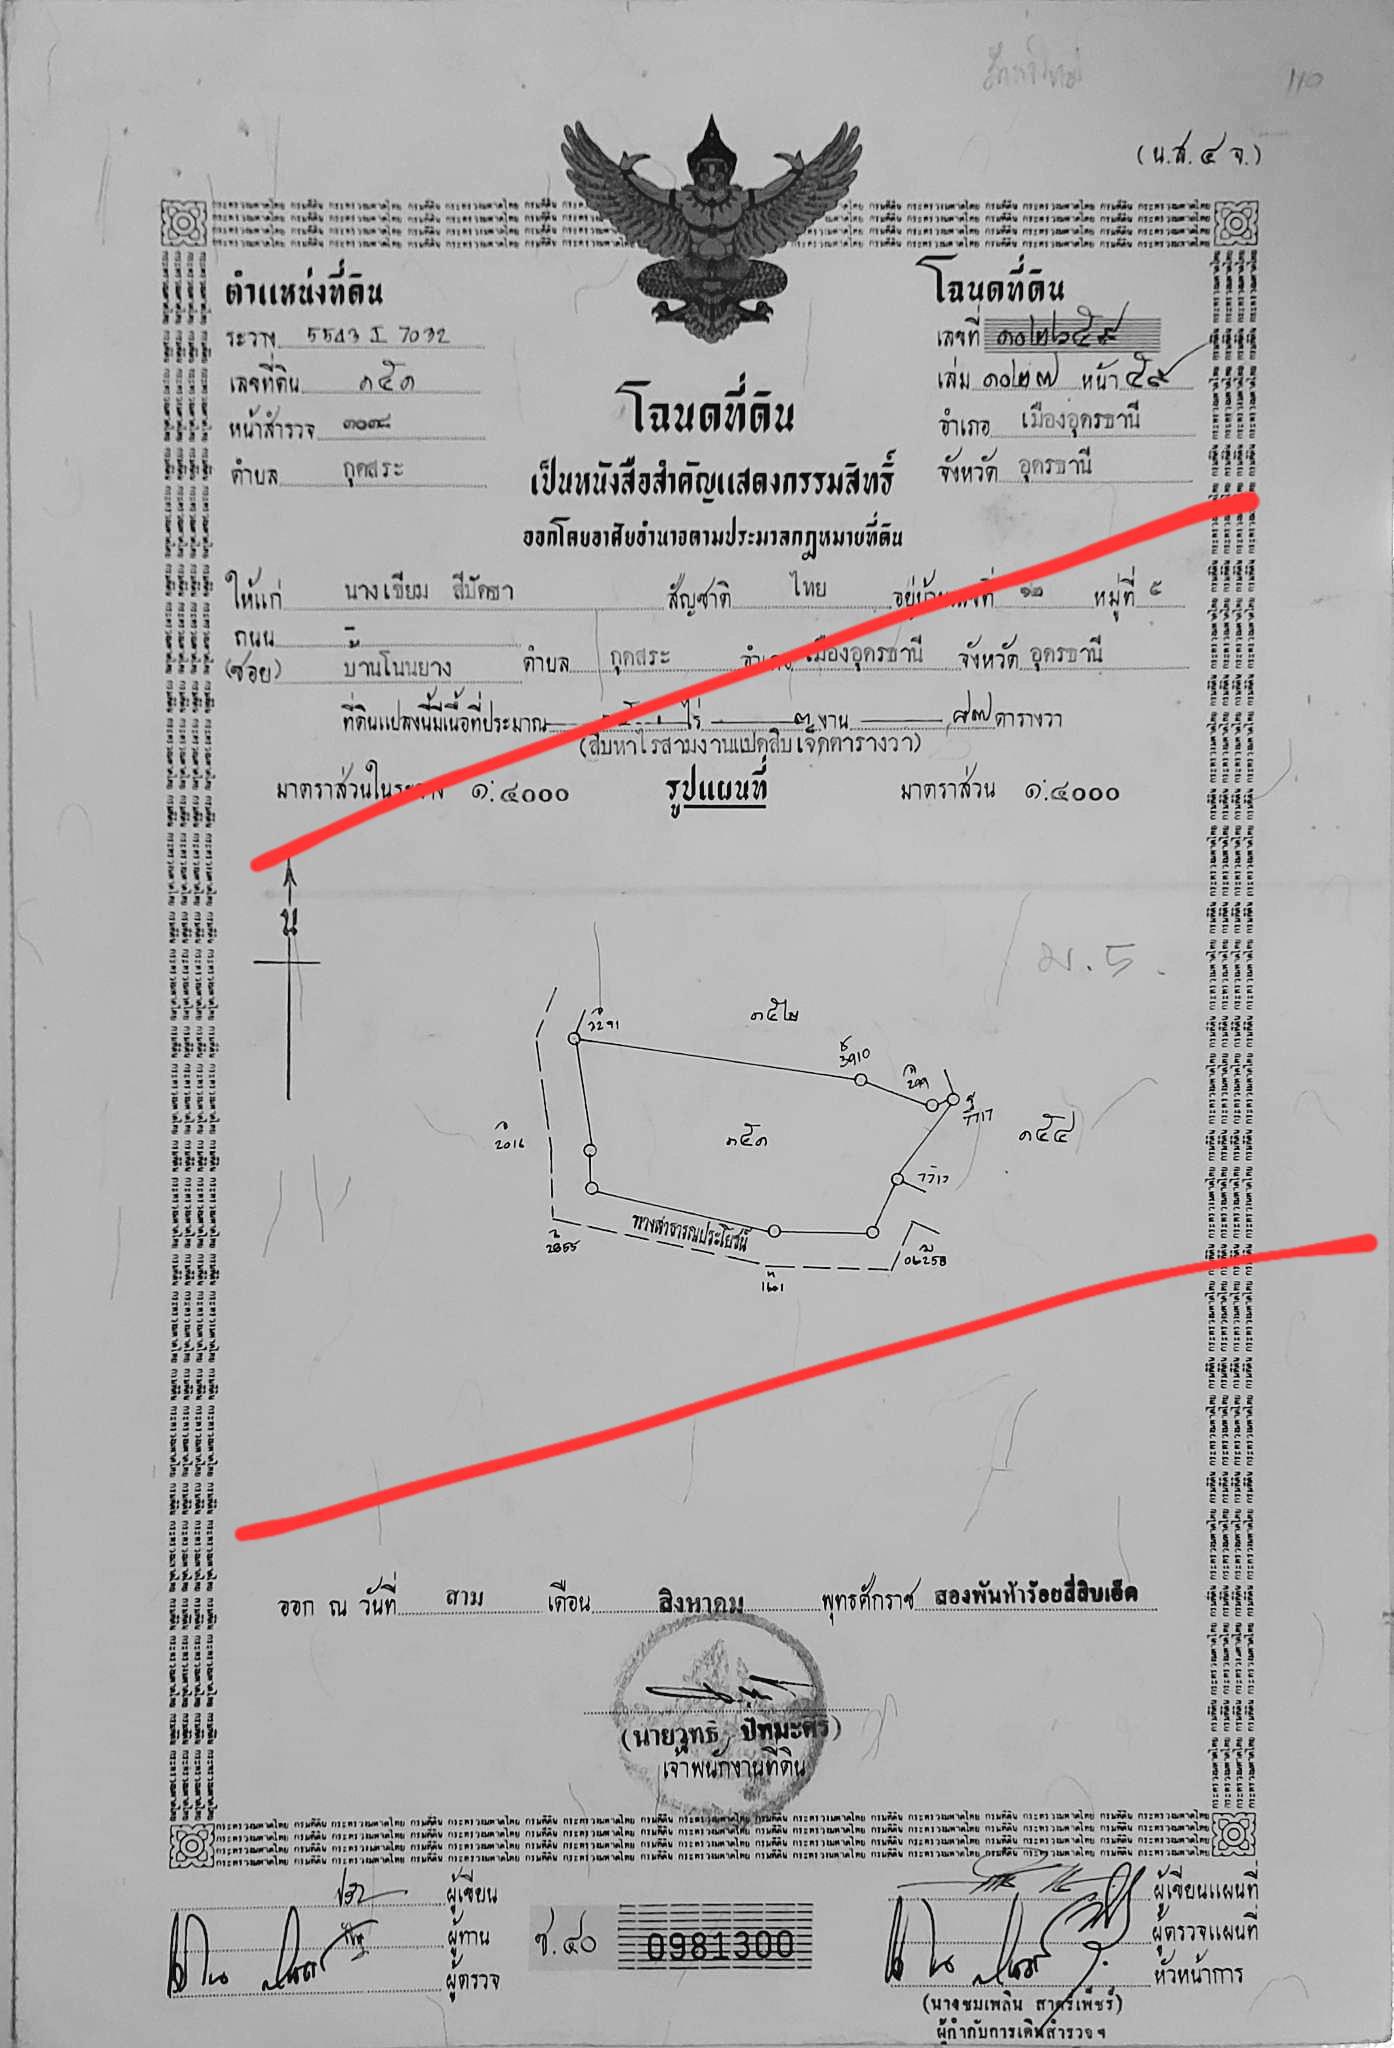 (น.ส. ๔ จ.)
ตำแหน่งที่ดิน
โฉนดที่ดิน
ระวาง 5543 I 7032
เลขที่ ๑๐๒๖๕๙
เลขที่ดิน ๑๕๑
เล่ม ๑๐๒๗ หน้า ๕๙
หน้าสำรวจ ๓๐๓๘
โฉนดที่ดิน
อำเภอ เมืองอุดรธานี
ตำบล กุดสระ
เป็นหนังสือสำคัญแสดงกรรมสิทธิ์
จังหวัด อุดรธานี
ออกโดยอาศัยอำนาจตามประมวลกฎหมายที่ดิน
ให้แก่ นางเขียม สีบัดชา สัญชาติ ไทย อยู่บ้านเลขที่ ๑๒ หมู่ที่ ๕
ถนน -
(ซอย) บ้านโนนยาง ตำบล กุดสระ อำเภอ เมืองอุดรธานี จังหวัด อุดรธานี
ที่ดินแปลงนี้มีเนื้อที่ประมาณ ไร่ ๓ งาน ๘๗ ตารางวา
(สิบห้าไร่สามงานแปดสิบเจ็ดตารางวา)
มาตราส่วนในระวาง ๑:๔๐๐๐ รูปแผนที่ มาตราส่วน ๑:๔๐๐๐
น
ม.5.
3291
3910
299
7717
๑๕๔
2016
๑๕๑
7717
ทางสาธารณประโยชน์
2855
06258
ออก ณ วันที่ สาม เดือน สิงหาคม พุทธศักราช สองพันห้าร้อยสี่สิบเอ็ด
(นายวุทธิ ปัทมะศิริ)
เจ้าพนักงานที่ดิน
ผู้เขียน
ผู้เขียนแผนที่
ผู้ทาน
ช.๔๐
0981300
ผู้ตรวจแผนที่
ผู้ตรวจ
หัวหน้าการ
(นางชมเพลิน สาตร์เพ็ชร์)
ผู้กำกับการเดินสำรวจฯ